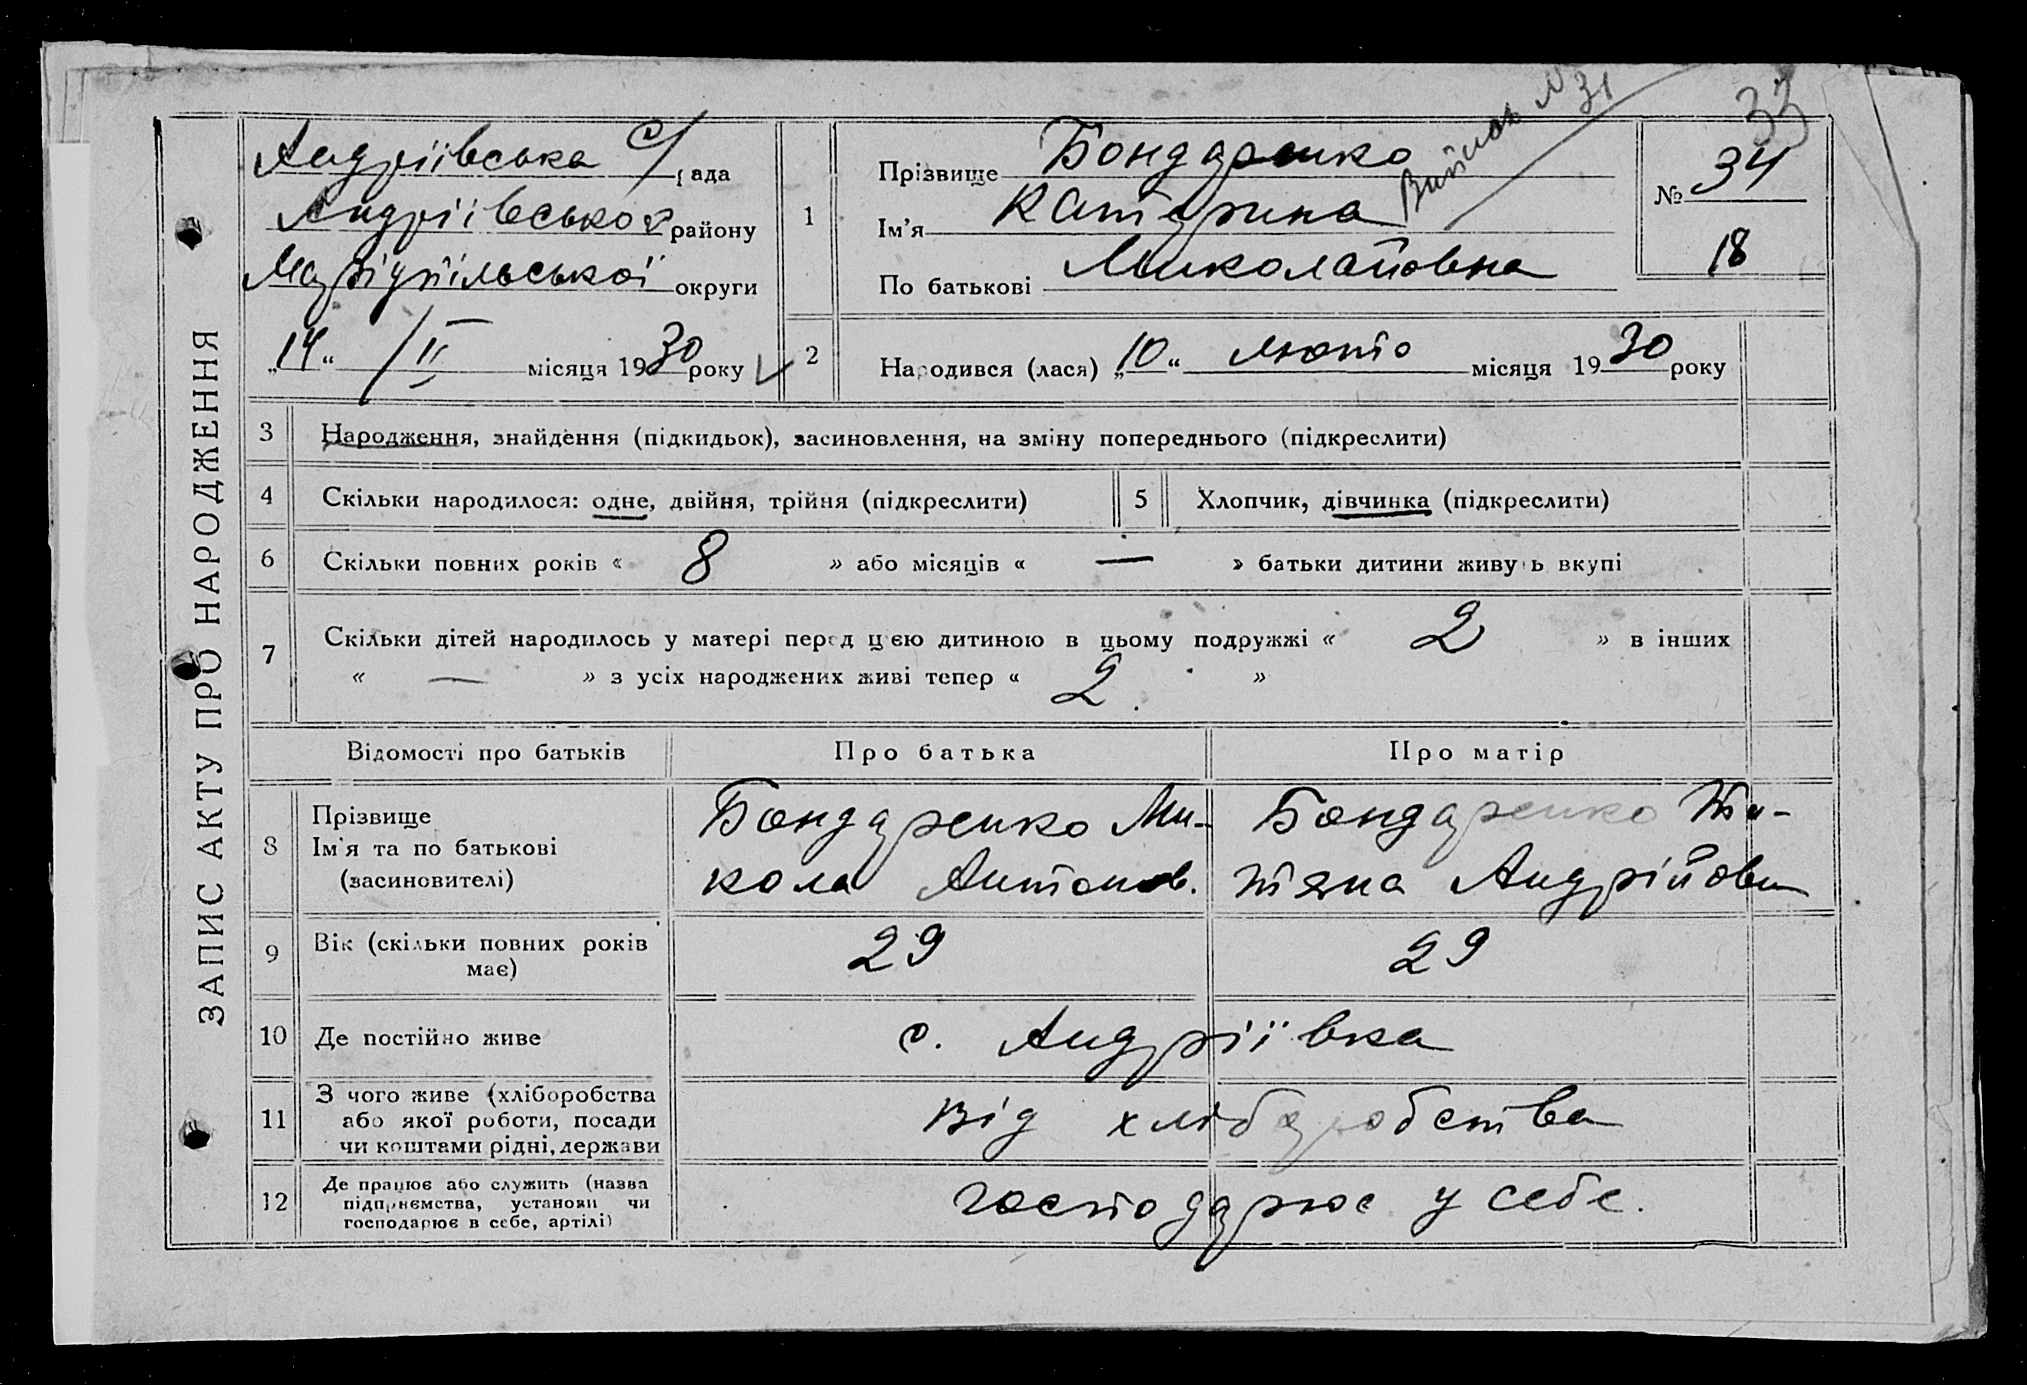 33
Випись № 31
ЗАПИС АКТУ ПРО НАРОДЖЕННЯ
Андріївська с/рада
Андріївського району
Маріупільської округи
„14“ /II місяця 1930 року
1
Прізвище Бондаренко
Ім'я Катерина
По батькові Миколаївна
№ 34
18
2
Народився (лася) „10“ лютого місяця 1930 року
3 Народження, знайдення (підкидьок), засиновлення, на зміну попереднього (підкреслити)
4 Скільки народилося: одне, двійня, трійня (підкреслити) 5 Хлопчик, дівчинка (підкреслити)
6 Скільки повних років « 8 » або місяців « — » батьки дитини живуть вкупі
7 Скільки дітей народилось у матері перед цією дитиною в цьому подружжі « 2 » в інших
« — » з усіх народжених живі тепер « 2 »
Відомості про батьків Про батька Про матір
8 Прізвище
Ім'я та по батькові
(засиновителі)
Бондаренко Ми-
кола Антонов.
Бондаренко Те-
тяна Андрійовн
9 Вік (скільки повних років
має)
29 29
10 Де постійно живе с. Андріївка
11 З чого живе (хліборобства
або якої роботи, посади
чи коштами рідні, держави
Від хліборобства
12 Де працює або служить (назва
підприємства, установи чи
господарює в себе, артілі)
господарює у себе.